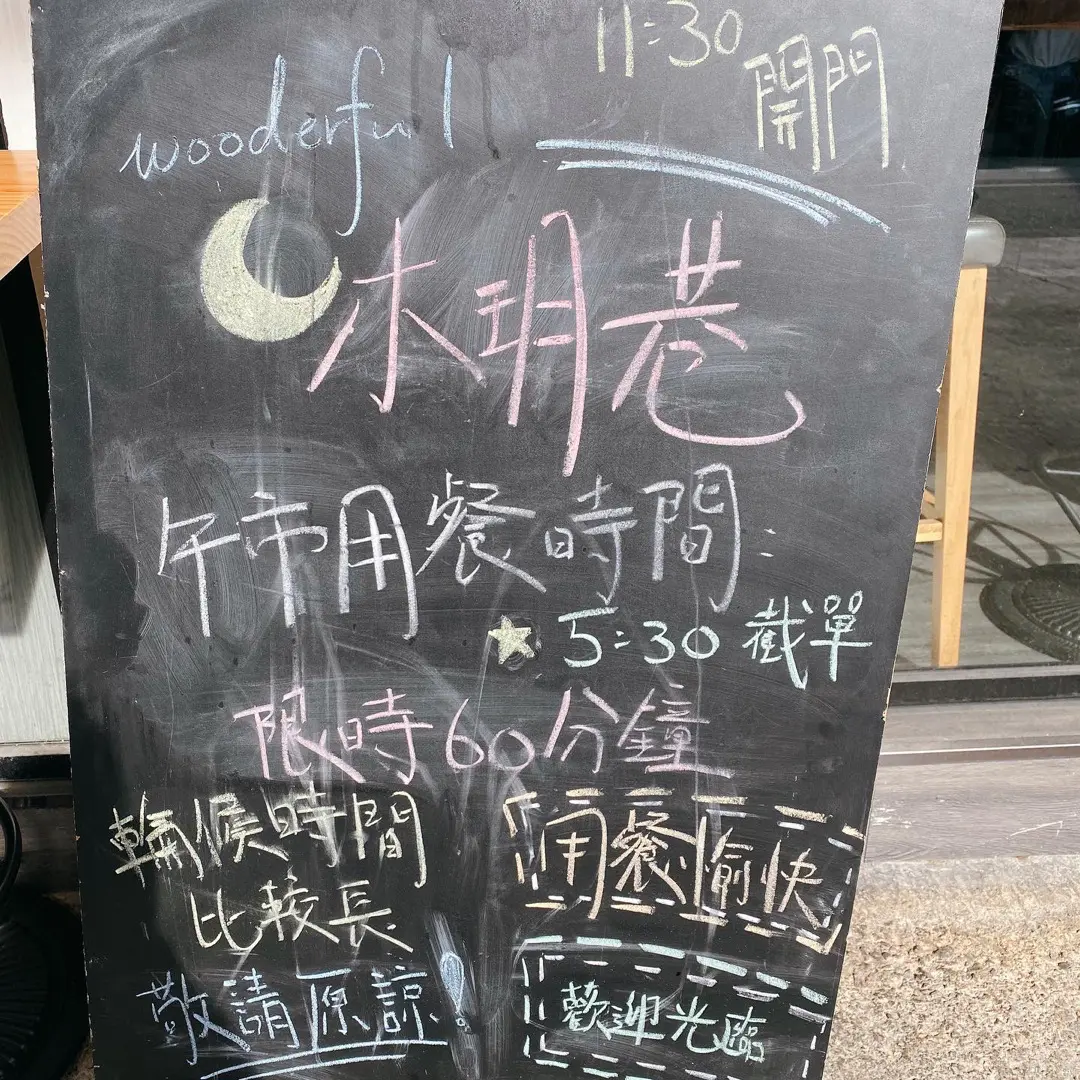 11:30 開門
wooderful
木玥巷
午市用餐時間:
5:30 截單
限時60分鐘
輪候時間
比較長
敬請原諒!
用餐愉快
歡迎光臨